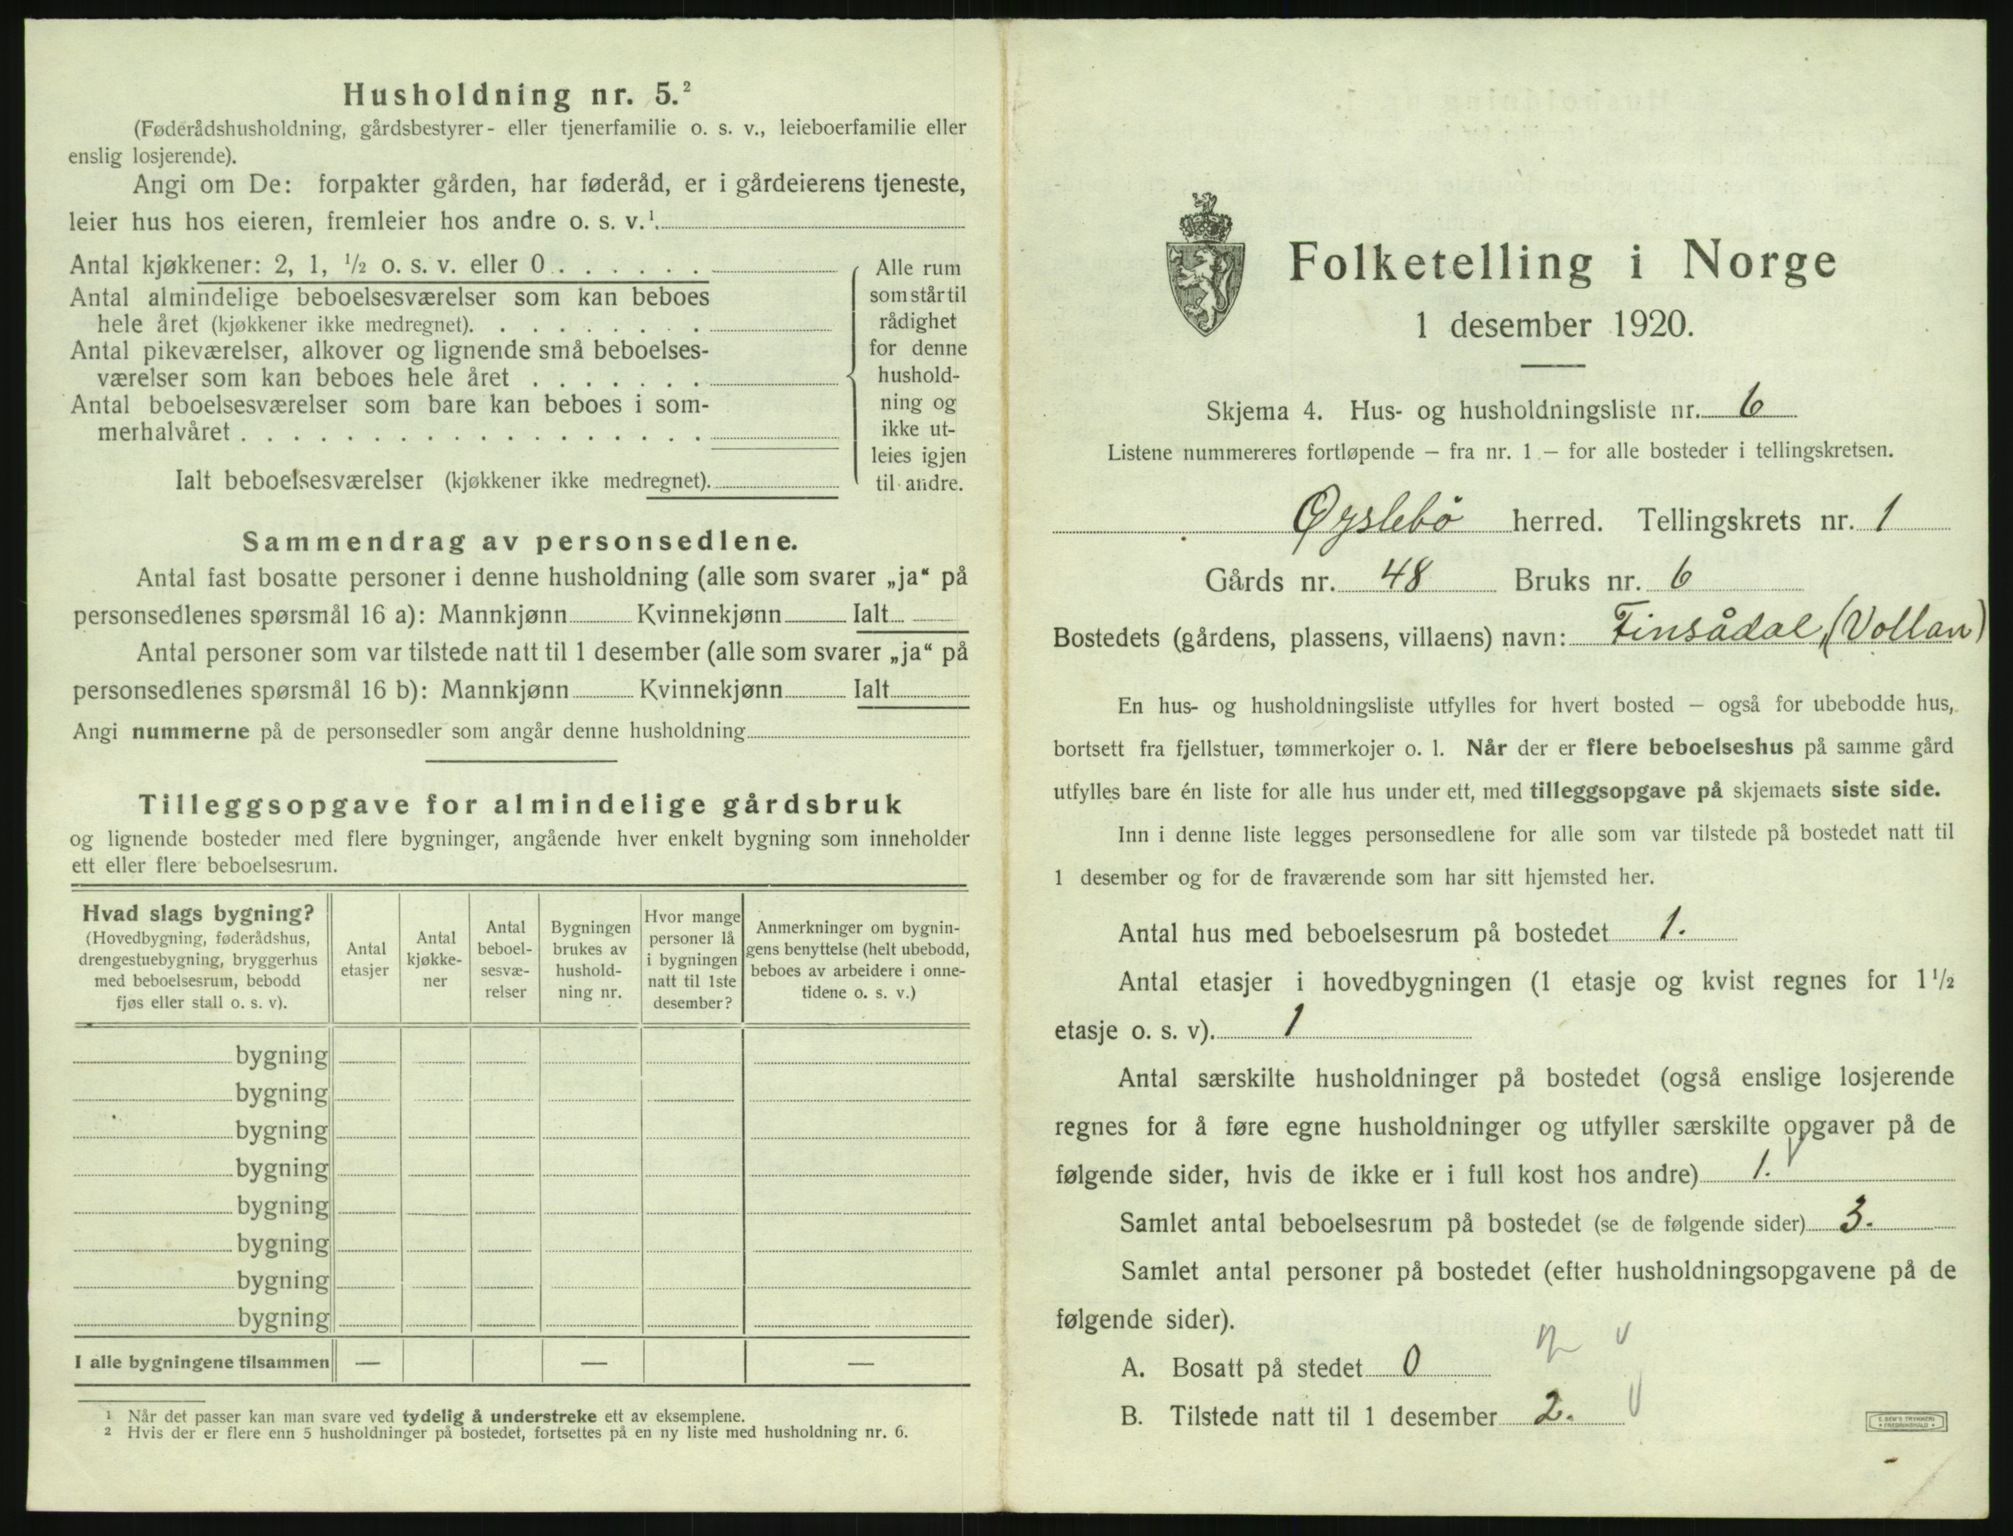 Husholdning nr. 5.²
(Føderådshusholdning, gårdsbestyrer- eller tjenerfamilie o. s. v., leieboerfamilie eller
enslig losjerende).
Angi om De: forpakter gården, har føderåd, er i gårdeierens tjeneste,
leier hus hos eieren, fremleier hos andre o. s. v.¹
Antal kjøkkener: 2, 1, ½ o. s. v. eller 0 . . . . . .
Antal almindelige beboelsesværelser som kan beboes
hele året (kjøkkener ikke medregnet). . . . . . . . .
Antal pikeværelser, alkover og lignende små beboelses-
værelser som kan beboes hele året . . . . . . .
Antal beboelsesværelser som bare kan beboes i som-
merhalvåret . . . . . . . . . . . . . . . . . .
Alle rum
som står til
rådighet
for denne
hushold-
ning og
ikke ut-
leies igjen
til andre.
Ialt beboelsesværelser (kjøkkener ikke medregnet).
Sammendrag av personsedlene.
Antal fast bosatte personer i denne husholdning (alle som svarer „ja“ på
personsedlenes spørsmål 16 a): Mannkjønn Kvinnekjønn Ialt
Antal personer som var tilstede natt til 1 desember (alle som svarer „ja“ på
personsedlenes spørsmål 16 b): Mannkjønn Kvinnekjønn Ialt
Angi nummerne på de personsedler som angår denne husholdning
Tilleggsopgave for almindelige gårdsbruk
og lignende bosteder med flere bygninger, angående hver enkelt bygning som inneholder
ett eller flere beboelsesrum.
Hvad slags bygning?
(Hovedbygning, føderådshus,
drengestuebygning, bryggerhus
med beboelsesrum, bebodd
fjøs eller stall o. s. v).
Antal
etasjer
Antal
kjøkke-
ner
Antal
beboel-
sesvæ-
relser
Bygningen
brukes av
hushold-
ning nr.
Hvor mange
personer lå
i bygningen
natt til 1ste
desember?
Anmerkninger om bygnin-
gens benyttelse (helt ubebodd,
beboes av arbeidere i onne-
tidene o. s. v.)
bygning
bygning
bygning
bygning
bygning
bygning
bygning
bygning
I alle bygningene tilsammen — — —
¹ Når det passer kan man svare ved tydelig å understreke ett av eksemplene.
² Hvis der er flere enn 5 husholdninger på bostedet, fortsettes på en ny liste med husholdning nr. 6.
Folketelling i Norge
1 desember 1920.
Skjema 4. Hus- og husholdningsliste nr. 6
Listene nummereres fortløpende — fra nr. 1 — for alle bosteder i tellingskretsen.
Øyslebø herred. Tellingskrets nr. 1
Gårds nr. 48 Bruks nr. 6
Bostedets (gårdens, plassens, villaens) navn: Finsådal, (Vollan)
En hus- og husholdningsliste utfylles for hvert bosted — også for ubebodde hus,
bortsett fra fjellstuer, tømmerkojer o. l. Når der er flere beboelseshus på samme gård
utfylles bare én liste for alle hus under ett, med tilleggsopgave på skjemaets siste side.
Inn i denne liste legges personsedlene for alle som var tilstede på bostedet natt til
1 desember og for de fraværende som har sitt hjemsted her.
Antal hus med beboelsesrum på bostedet 1.
Antal etasjer i hovedbygningen (1 etasje og kvist regnes for 1½
etasje o. s. v). 1
Antal særskilte husholdninger på bostedet (også enslige losjerende
regnes for å føre egne husholdninger og utfyller særskilte opgaver på de
følgende sider, hvis de ikke er i full kost hos andre) 1.
Samlet antal beboelsesrum på bostedet (se de følgende sider) 3.
Samlet antal personer på bostedet (efter husholdningsopgavene på de
følgende sider).
A. Bosatt på stedet 0
B. Tilstede natt til 1 desember 2.